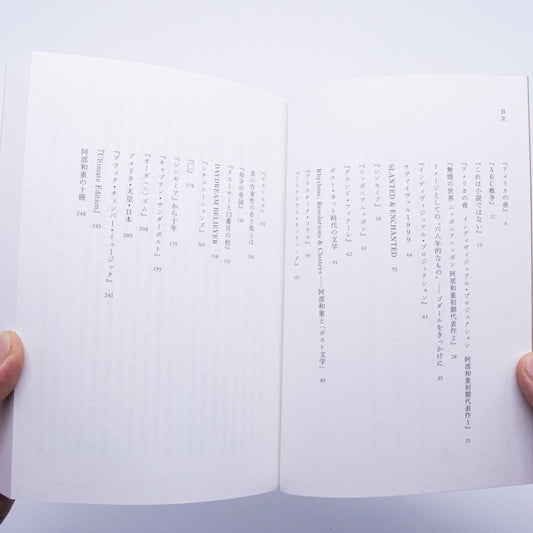 目次
『アメリカの夜』 6
『ABC戦争』 12
『これは小説ではない』 13
『アメリカの夜 インディヴィジュアル・プロジェクション 阿部和重初期代表作1』 21
『無情の世界 ニッポニアニッポン 阿部和重初期代表作2』 28
イメージとしての“六八年的なもの”――ゴダールをきっかけに 35
『インディヴィジュアル・プロジェクション』 43
サヴァイヴァル1999 44
SLANTED & ENCHANTED 55
『シンセミア』 58
『ニッポニアニッポン』 61
『グランド・フィナーレ』 62
ポスト・ネット時代の文学 65
Rhythms, Resolutions & Clusters――阿部和重と「ポスト文学」 85
『プラスティック・ソウル』 95
『ミステリアスセッティング』 101
『ピストルズ』
真の作家性の在り処とは
『幼少の帝国』 195
『クエーサーと13番目の柱』 156
DAYDREAM BELIEVER 158
『シチュエーションズ』 165
『□』 178
『シンセミア』から十年 179
『キャプテンサンダーボルト』 199
『オーガ(ニ)ズム』 208
アメリカ・天皇・日本 209
『ブラック・チェンバー・ミュージック』 241
『Ultimate Edition』 245
阿部和重の十冊 248